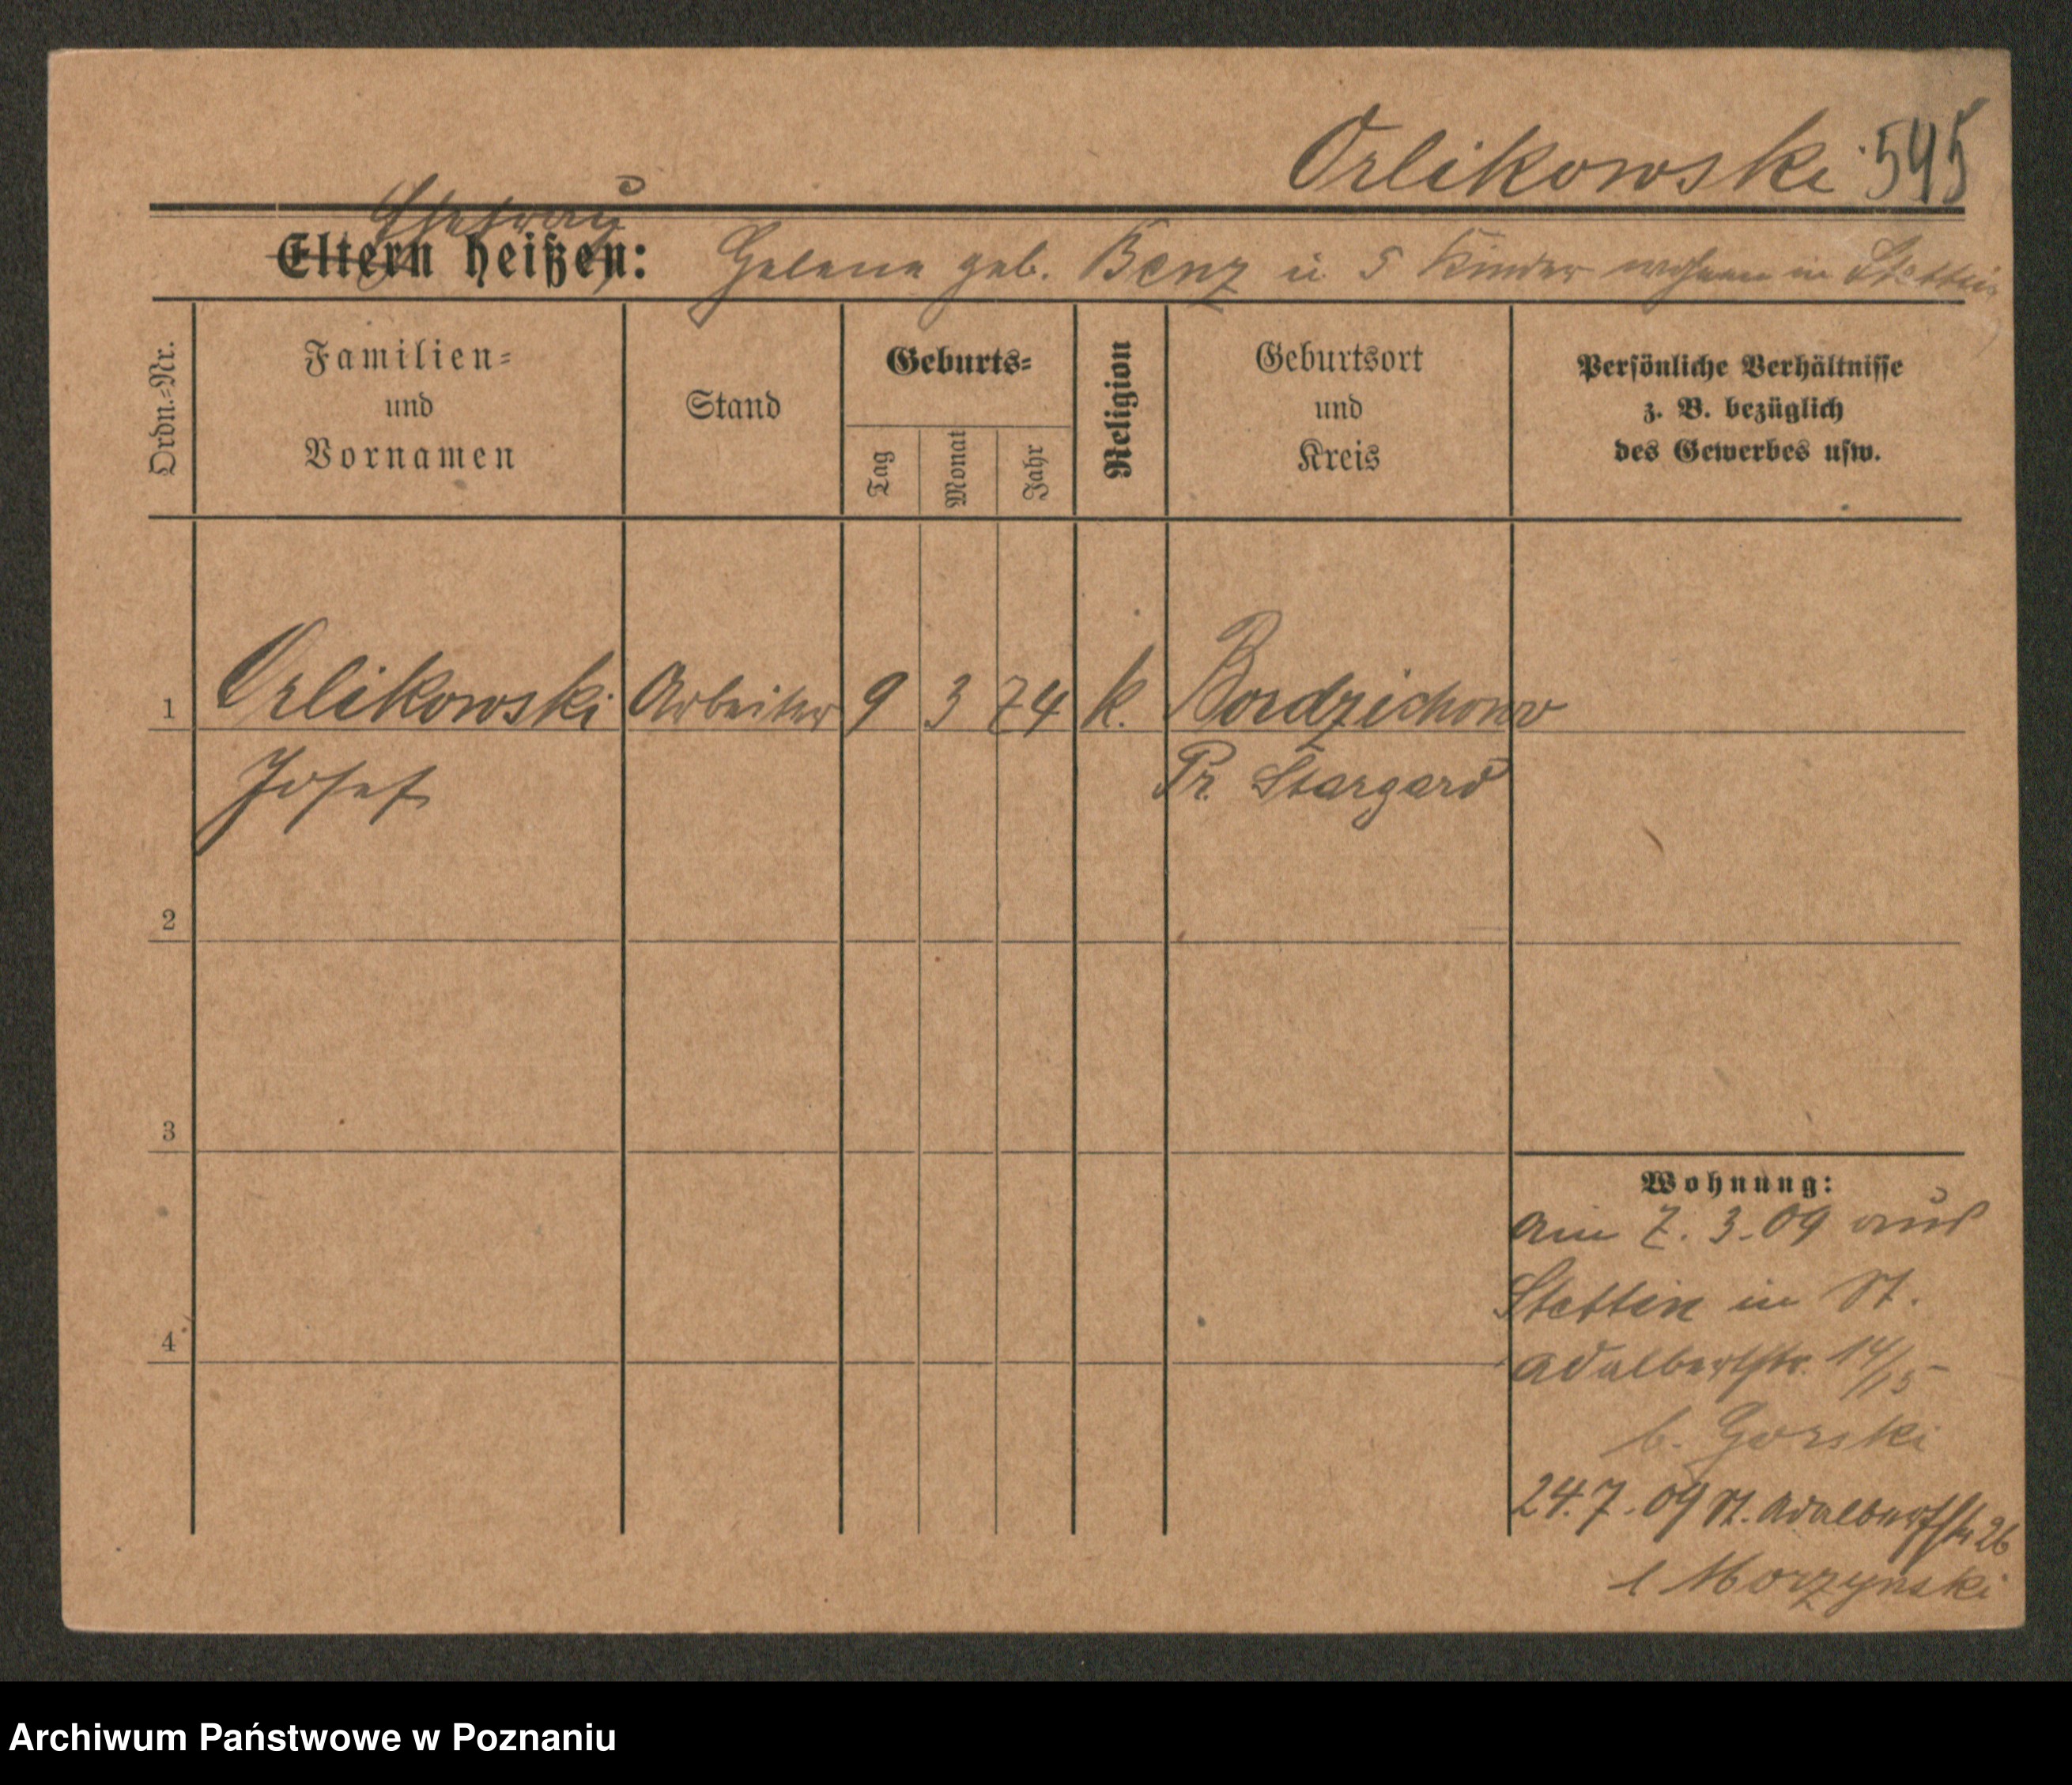 Orlikowski 545
Ehefrau
Eltern heißen: Helene geb. Benz u 5 Kinder wohnen in Stettin
Ordn.-Nr.
Familien-
und
Vornamen
Stand
Geburts-
Tag
Monat
Jahr
Religion
Geburtsort
und
Kreis
Persönliche Verhältnisse
z. B. bezüglich
des Gewerbes usw.
1 Orlikowski Arbeiter 9 3 74 k. Bordzichow
Josef Pr. Stargard
2
3
Wohnung:
am 7. 3. 09 aus
Stettin in St.
4
Adalbertstr. 14/15
b. Gorski
24.7.09 St. Adalbertstr 26
b Morzynski
Archiwum Państwowe w Poznaniu